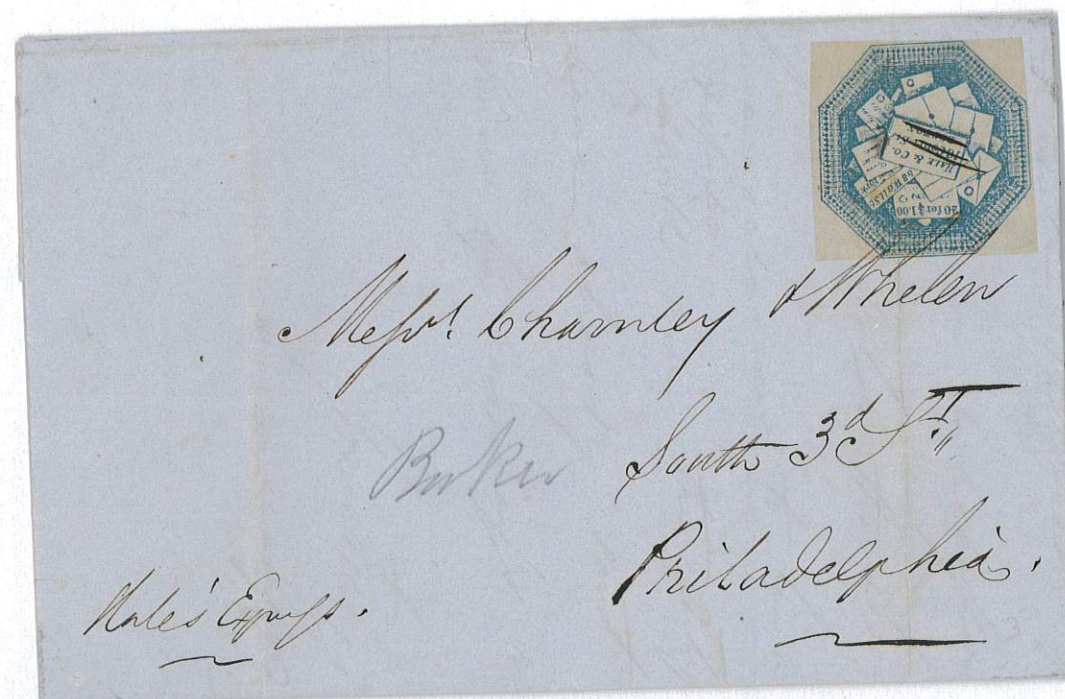 HALE & CO.
20 for $1.00
Messrs. Charnley & Whelen
South 3d St.
Philadelphia.
Hale's Express.
3